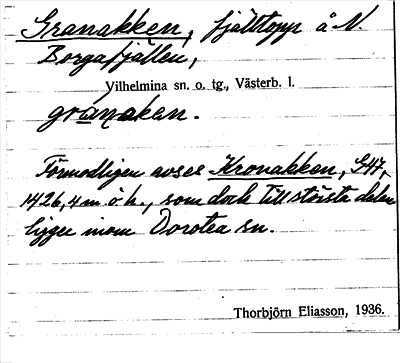 Granakken, fjälltopp å N.
Borgafjällen,
Vilhelmina sn. o. tg., Västerb. l.
gránakan.
Förmodligen avses Kronakken, G47,
1426,4 m ö. h., som dock till största delen
ligger inom Dorotea sn.
Thorbjörn Eliasson, 1936.